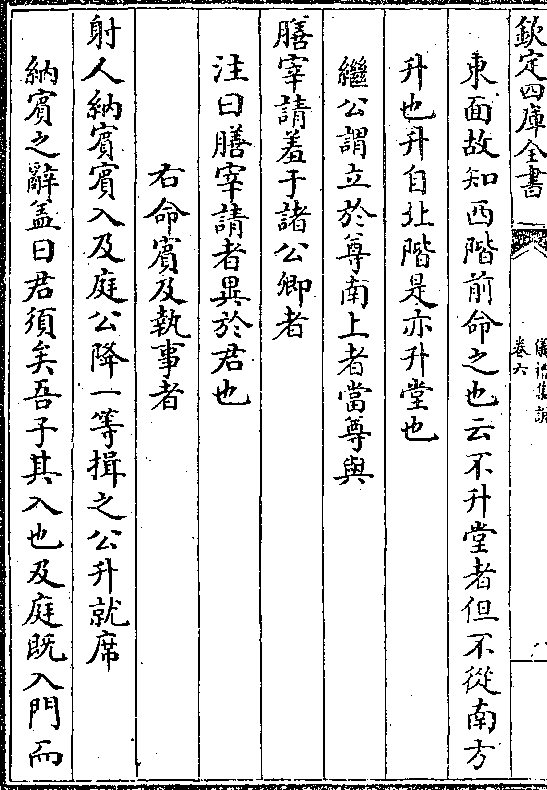 欽定四庫全書
儀禮集說
卷六
東面故知西階前命之也云不升堂者但不從南方
升也升自北階是亦升堂也
繼公謂立於尊南上者當尊與
膳宰請羞于諸公卿者
注曰膳宰請者異於君也
右命賓及執事者
射人納賓賓入及庭公降一等揖之公升就席
納賓之辭蓋曰君須矣吾子其入也及庭既入門而